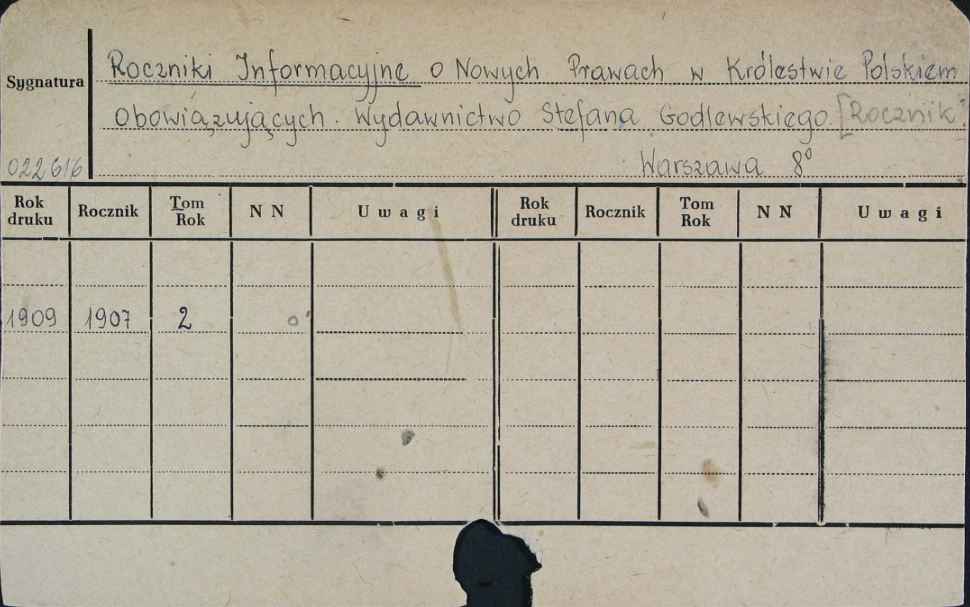 Sygnatura
Roczniki Informacyjne o Nowych Prawach w Królestwie Polskiem
Obowiązujących. Wydawnictwo Stefana Godlewskiego [Rocznik
022616
Warszawa 8⁰
Rok druku Rocznik Tom Rok N N Uwagi Rok druku Rocznik Tom Rok N N Uwagi
1909 1907 2